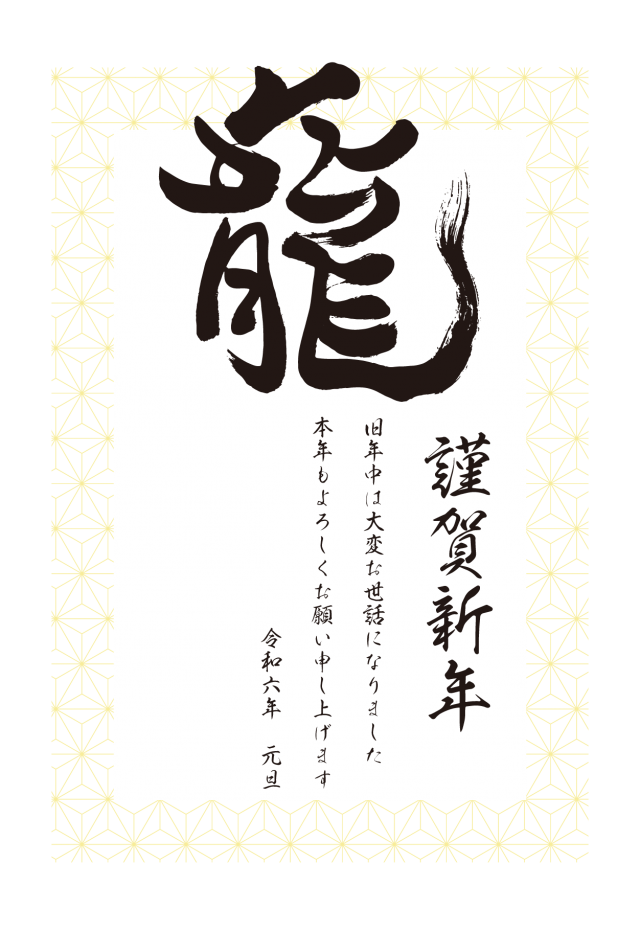 龍
謹賀新年
旧年中は大変お世話になりました
本年もよろしくお願い申し上げます
令和六年　元旦